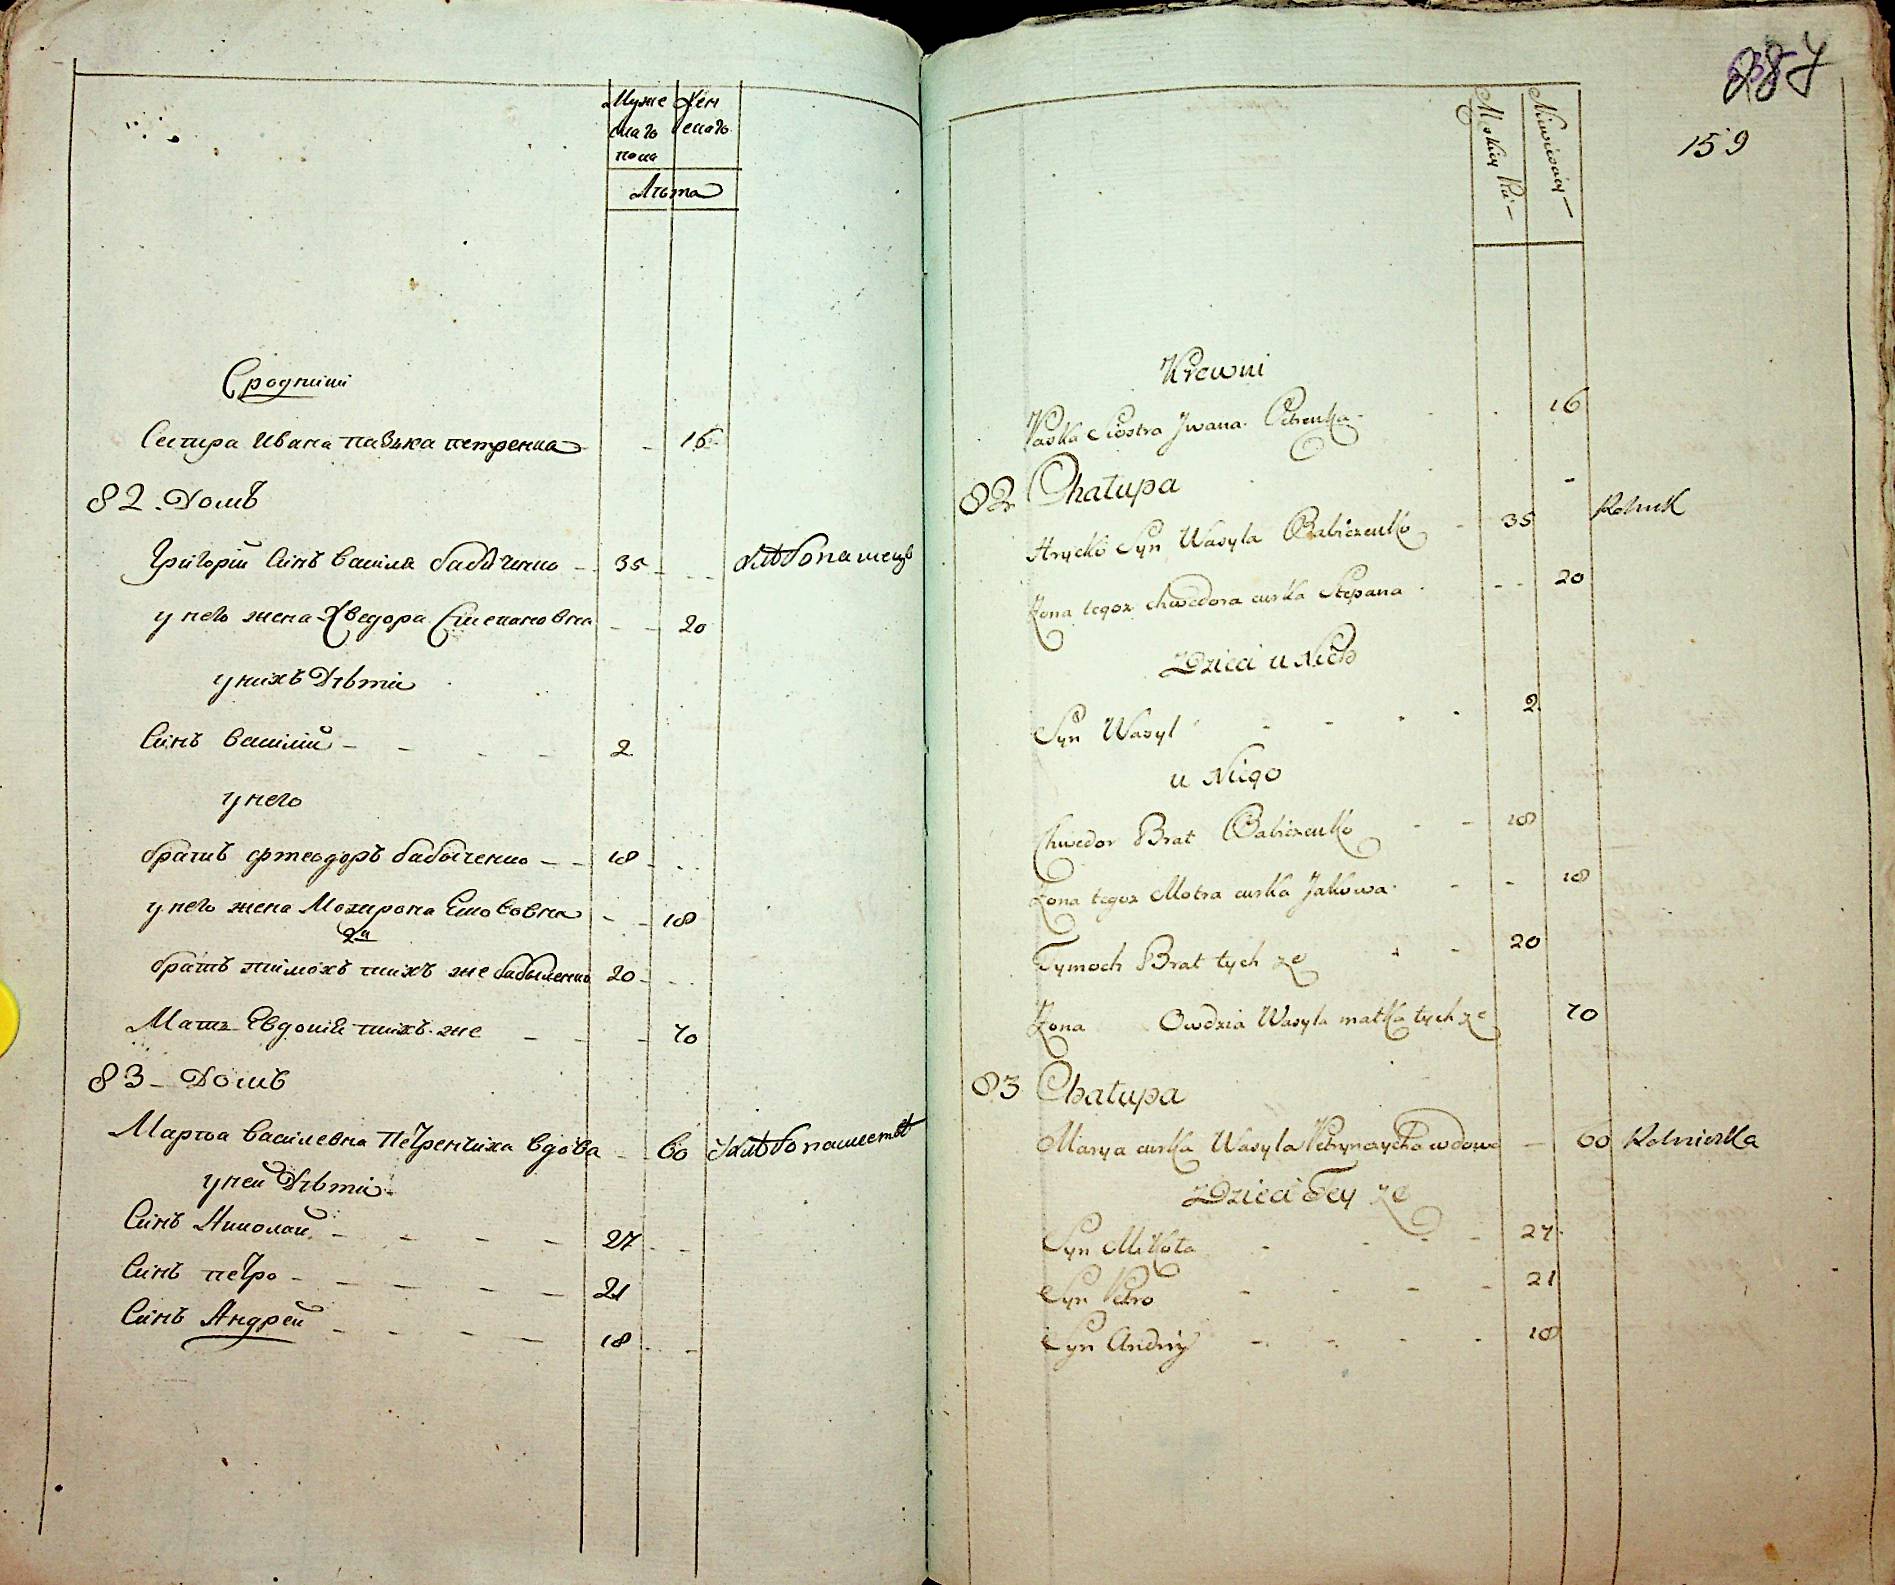 Муже Жен
скагь скагь
пола
Лѣта
Сродники
Сестра Ивана павзка петренка - 16
82. Домъ
Григорій Синъ Василя бабѣченко - 35 - - - хлѣбопашецъ
у него жена Хведора Степановна - - 20
у нихъ Дѣти
Синъ Василій - - - - 2
у него
братъ фтеодоръ бабыченко - - 18 - - -
у него жена МотронаЕковovна - - 18
2й
братъ тимохъ тихъ же бабыченко 20 - - -
Мать Евдокія тихъ же - - - 70
83 - Домъ
Марѳа Василевна Петренчиха вдова - 60 хлѣбопашество
у неи Дѣти
Синъ Николай - - - - 27 - -
Синъ петро - - - - - 21
Синъ Андрей - - - - 18 - -
287
Męskiey Płci - Niewieściey -
159
Krewni
Paska Siostra Jwana Petrenka - 16
82 Chałupa -
Hrycko Syn Wasyla Babiczenko - 35 Rolnik
Żona tegoz Chwedora curka Stepana - - 20
Dzieci u Nich
Syn Wasyl - - - - 2
u Niego
Chwedor Brat Babiczenko - - 18
Żona tegoz Motra curka Jakowa - - 18
Tymoch Brat tych ze - - 20
Żona Owdzia Wasyla matka tych ze 70
83 Chałupa
Marya curka Wasyla Petrynczycha wdowa - 60 Rolniczka
Dzieci Tey ze
Syn Mikoła - - - - 27
Syn Petro - - - - 21
Syn Andriy - - - - 18